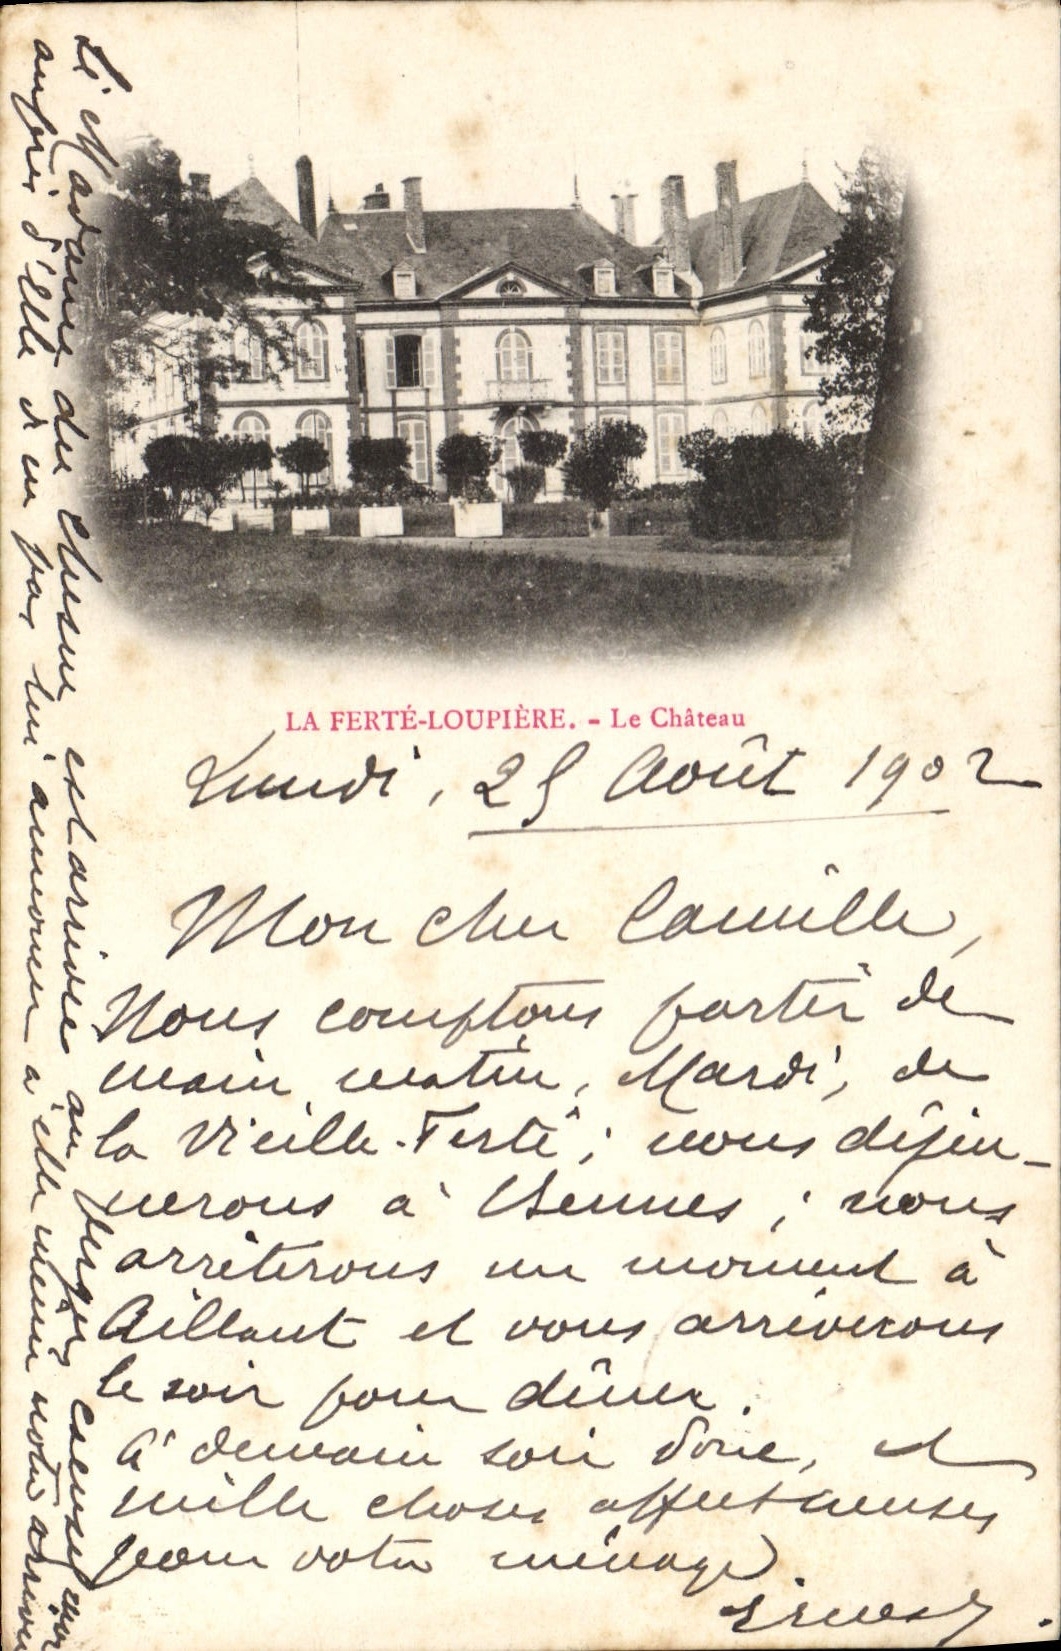 LA FERTÉ-LOUPIÈRE. - Le Château
Lundi, 25 Août 1902
Mon cher Camille,
Nous comptons partir de
main matin, Mardi, de
la Vieille-Ferté; nous déjeu-
nerons à Sennes; nous
arrêterons un moment à
Aillant et nous arriverons
le soir pour dîner.
à demain soir donc, et
mille choses affectueuses
pour votre ménage
Ernest.
Si Madame du Chesne est arrivée au Verger, excusez moi
auprès d'elle si un pas lui annoncer à elle même notre arrivée